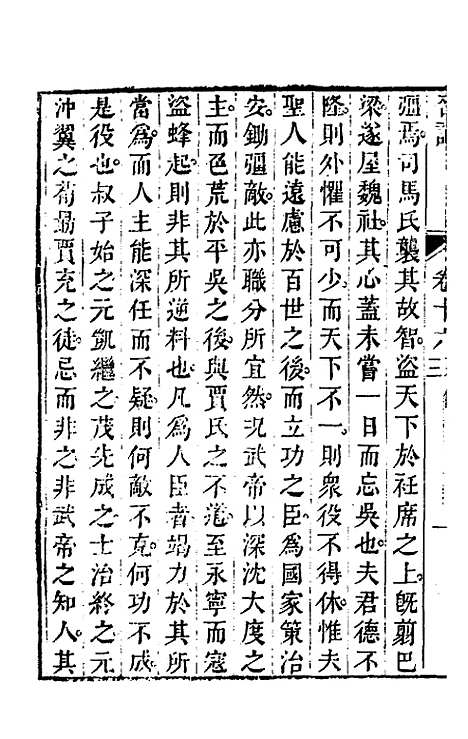 彊焉司馬氏襲其故智盜天下於衽席之上旣翦巴
梁遂屋魏社其心蓋未嘗一日而忘吳也夫君德不
隆則外懼不可少而天下不一則衆役不得休惟夫
聖人能遠慮於百世之後而立功之臣爲國家策治
安鋤彊敵此亦職分所宜然況武帝以深沈大度之
主而色荒於平吳之後與賈氏之不蓫至永寧而寇
盜蜂起則非其所逆料也凡爲人臣者竭力於其所
當爲而人主能深任而不疑則何敵不克何功不成
是役也叔子始之元凱繼之茂先成之士治終之元
沖翼之荀勗賈充之徒忌而非之非武帝之知人其
卷十六
三